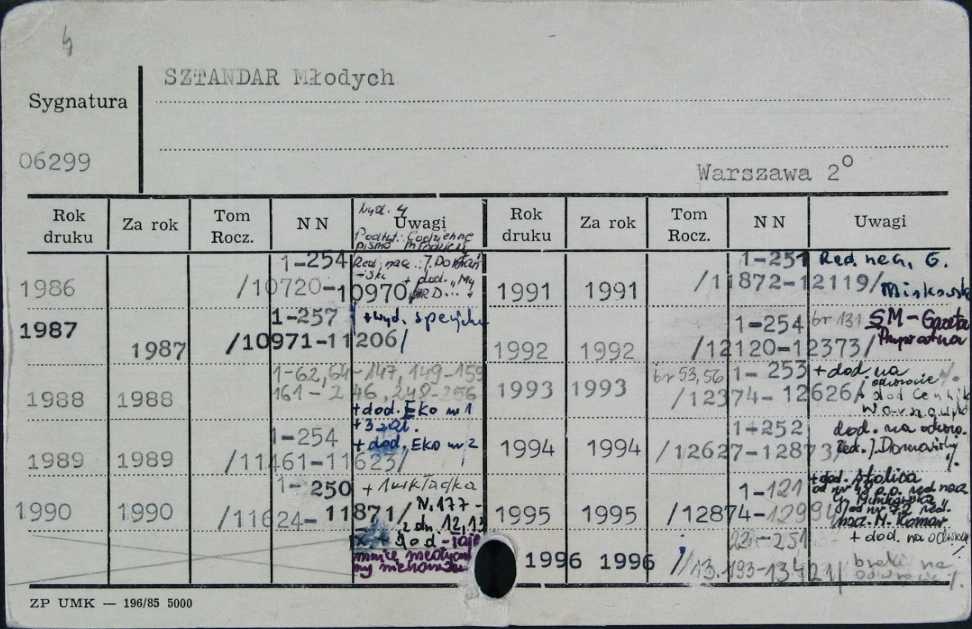 4
SZTANDAR Młodych
Sygnatura
06299
Warszawa 2º
Rok druku Za rok Tom Rocz. NN Uwagi Rok druku Za rok Tom Rocz. NN Uwagi
Wyd. 4
Podtyt.: Codzienne
pismo
1986 1-254 /10720-10970/
Red. nacz.: J.
+ dod. "My
1987 1987 1-257 /10971-11206/ + wyd. specjalne
1988 1988 1-62, 64-147, 149-159
161-246, 248-256
+ dod. Eko nr 1
+ 3 zał.
1989 1989 1-254 /11461-11623/ + dod. Eko nr 2
1990 1990 1-250 /11624-11871/ + 1 wkładka
N. 177-
z dn. 12, 13
1991 1991 1-251 /11872-12119/ Red nacz. G.
Miskowski
1992 1992 1-254 /12120-12373/ br 131 SM-Gazeta
1993 1993 br 53, 56 1-253 /12374-12626/ + dod na
odwrocie %.
+ dod
1994 1994 1-252 /12627-12873/ dod. na odwro.
Red. J. %.
1995 1995 1-121 /12874- + dod. Stolica
od nr 48 p.o. red nacz
od nr 72 red.
nacz.
+ dod. na
1996 1996 -251 /13.193-13421/ braki na
odwrocie %.
ZP UMK — 196/85 5000